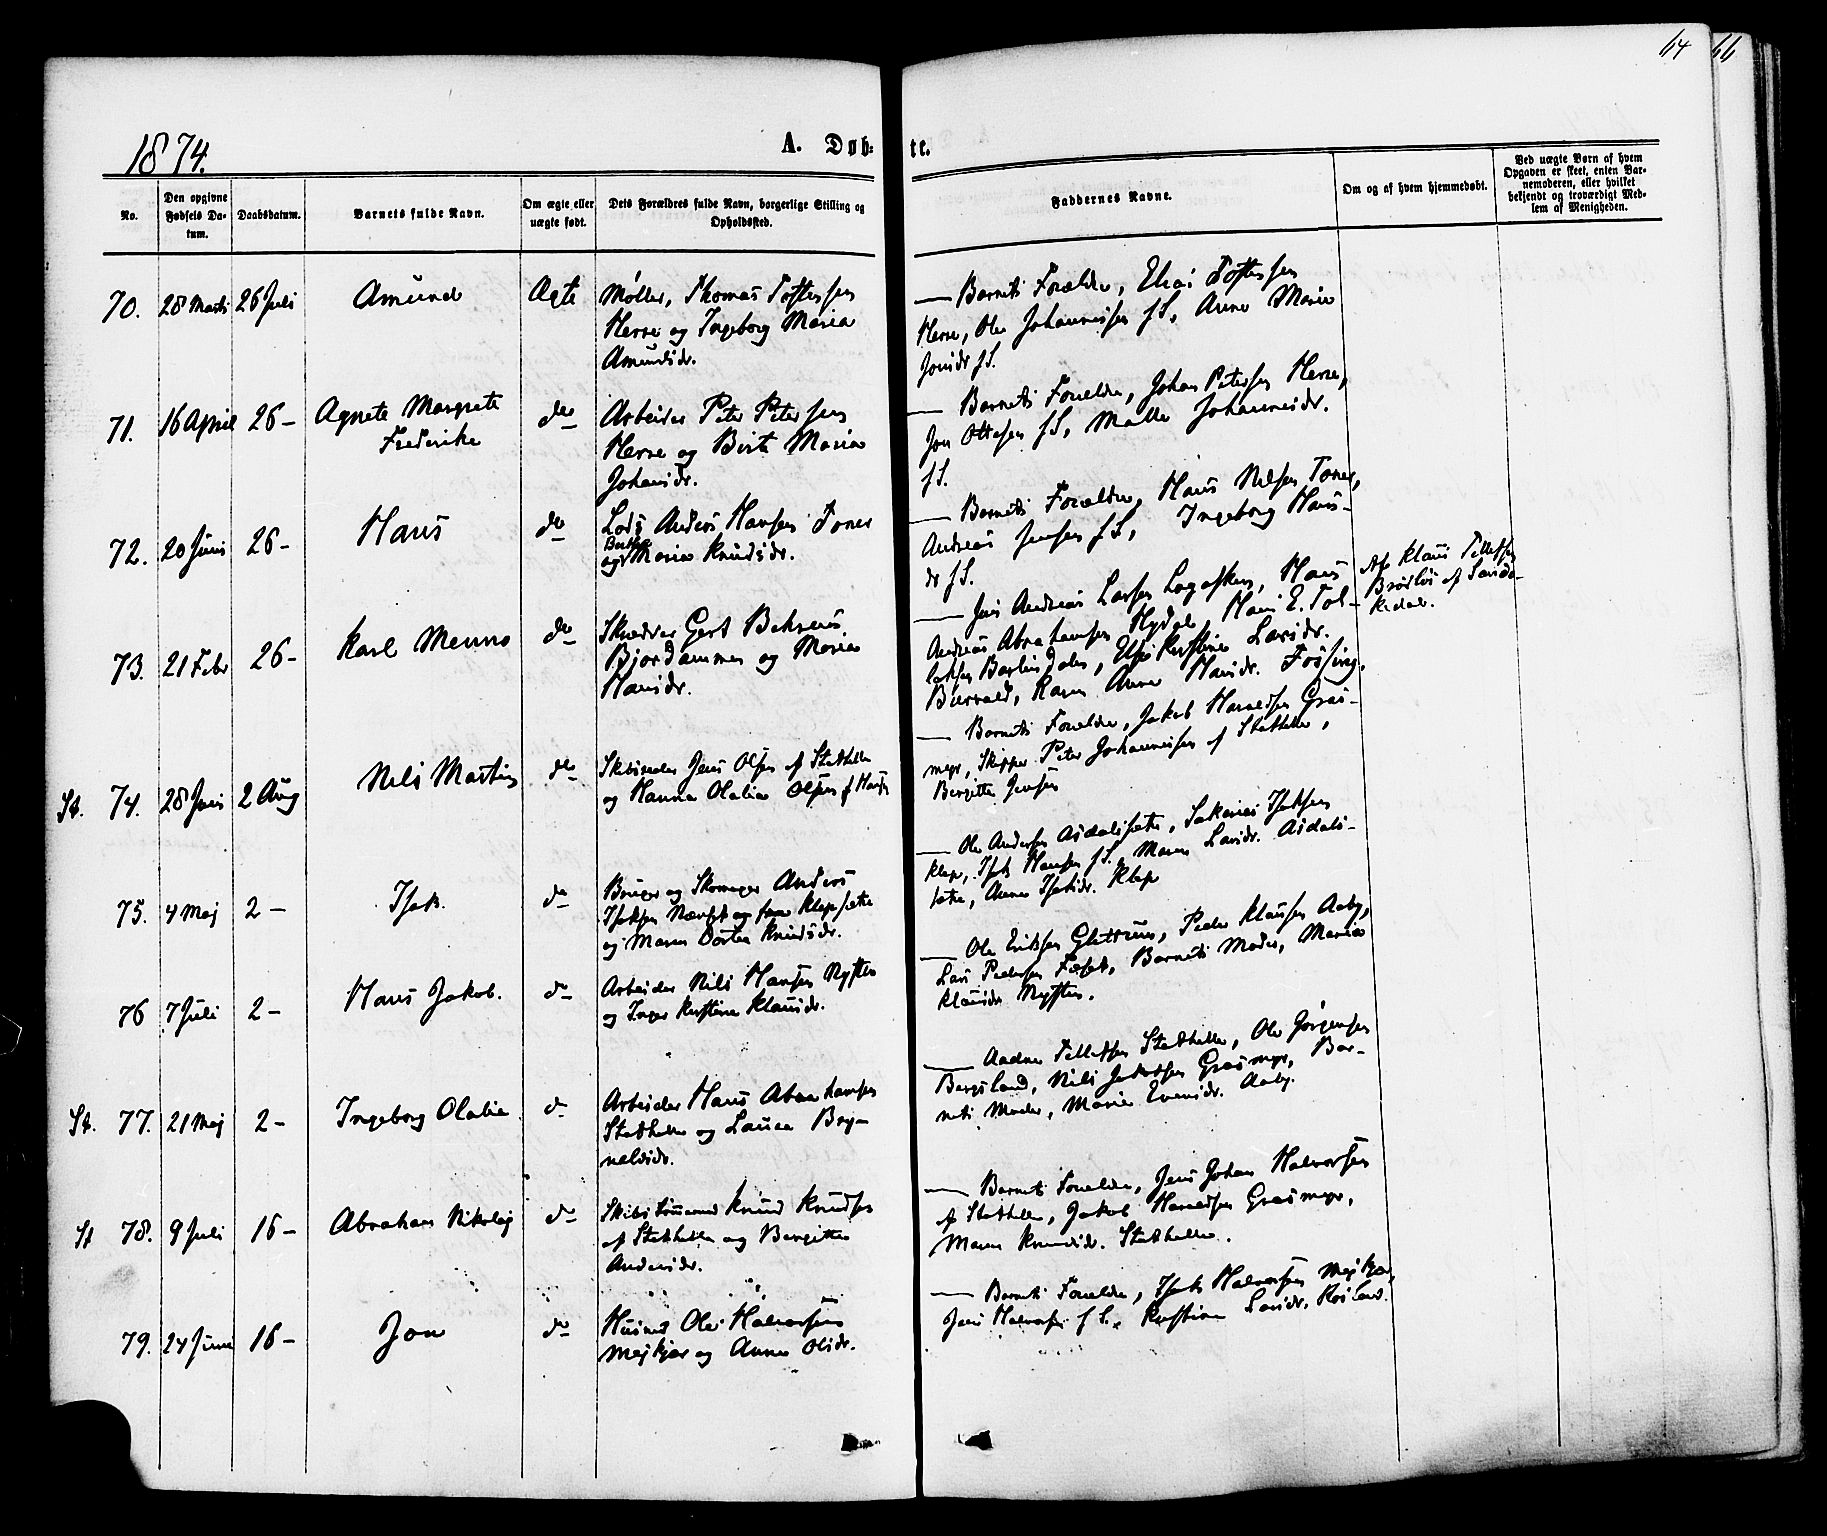 64
66
1874.
A. Døb-
te.
No.
Den opgivne Fødsels Da-
tum.
Daabsdatum.
Barnets fulde Navn.
Om ægte eller
uægte født.
Dets Forældres fulde Navn, borgerlige Stilling og
Opholdssted.
Faddernes Navne.
Om og af hvem hjemmedøbt.
Ved uægte Børn af hvem
Opgaven er skeet, enten Bar-
nemoderen, eller hvilket
bekjendt og troværdigt Med-
lem af Menigheden.
70. 28 Marts 26 Juli Amund Ægte Møller, Thomas Toftessen
Herre og Ingeborg Maria
Amundsdr.
— Barnets Forældre, Elias Toftessen
Herre, Ole Johannessen f S., Anne Marie
Jonsdr f S.
71. 16 April 26 – Agnete Margrete
Frederike
do Arbeider Peter Petersen
Herre og Birte Maria
Johansdr.
— Barnets Forældre, Johan Petersen Herre,
Jon Ottesen f S., Malle Johannesdr.
f S.
72. 20 Juni 26 – Hans do Lods Anders Hansen Toner
og Berthe Maria Knudsdr.
— Barnets Forældre, Hans Nilsen Toner,
Andreas Jensen f S., Ingeborg Hans-
dr f S.
73. 21 Febr 26 – Karl Menno do Skredder Gert Behrens
Bjordammen og Maria
Hansdr.
— Jens Andreas Larsen Lagesken, Hans
Andreas Abrahamsen Hydal, Hans E. Tol-
lefsen Barlinddalen, Else Kirstine Larsdr.
Buervald, Karen Anne Hansdr. Fossing.
Af Klaus Tellefsen
Brødløs af Sande-
kedal.
St. 74. 28 Juni 2 Aug Nils Martin do Skibsreder Jens Olsen af Stathelle
og Hanna Olalia Olsen f Hansen
— Barnets Forældre, Jakob Haraldsen Gras-
myr, Skipper Peter Johannessen af Stathelle,
Birgitte Jensen
75. 4 Maj 2 – Isak. do Bruger og Skomager Anders
Isaksen og fam Klepsæte
og Maren Dortea Knudsdr.
— Ole Andersen Aasdalsæte, Sakarias Isaksen
Klep, Isak Hansen f S., Maren Larsdr. Aasdals-
sæte, Anne Isaksdr. Klep
76 7 Juli 2 – Hans Jakob. do Arbeider Nils Hansen Nysten
og Inger Kirstine Klausdr.
— Ole Eriksen Glittrum, Peder Klausen Aaby,
Lars Pedersen Fæset, Barnets Moder, Maria
Klausdr Nysten.
St. 77. 21 Maj 2 – Ingeborg Olalia do Arbeider Hans Abrahamsen
Stathelle og Laura Bry-
neldsdr.
— Aadne Tellefsen Stathelle, Ole Jørgensen
Bergsland, Nils Jakobsen Grasmyr, Bar-
nets Moder, Marie Evensdr. Aaby.
St 78. 9 Juli 16 – Abraham Nikolaj do Skibstømmermand Knud Knudsen
af Stathelle og Birgitte
Andersdr.
— Barnets Forældre, Jens Johan Halvorsen
af Stathelle, Jakob Haraldsen Grasmyr,
Maren Knudsdr. Stathelle.
79. 24 Juni 16 – Jon do Husmd Ole Halvorsen
Mejkjær og Anne Olsdr.
— Barnets Forældre, Isak Halvorsen Mejkjær,
Jens Halvorsen f S., Kirstine Larsdr. Røsland.